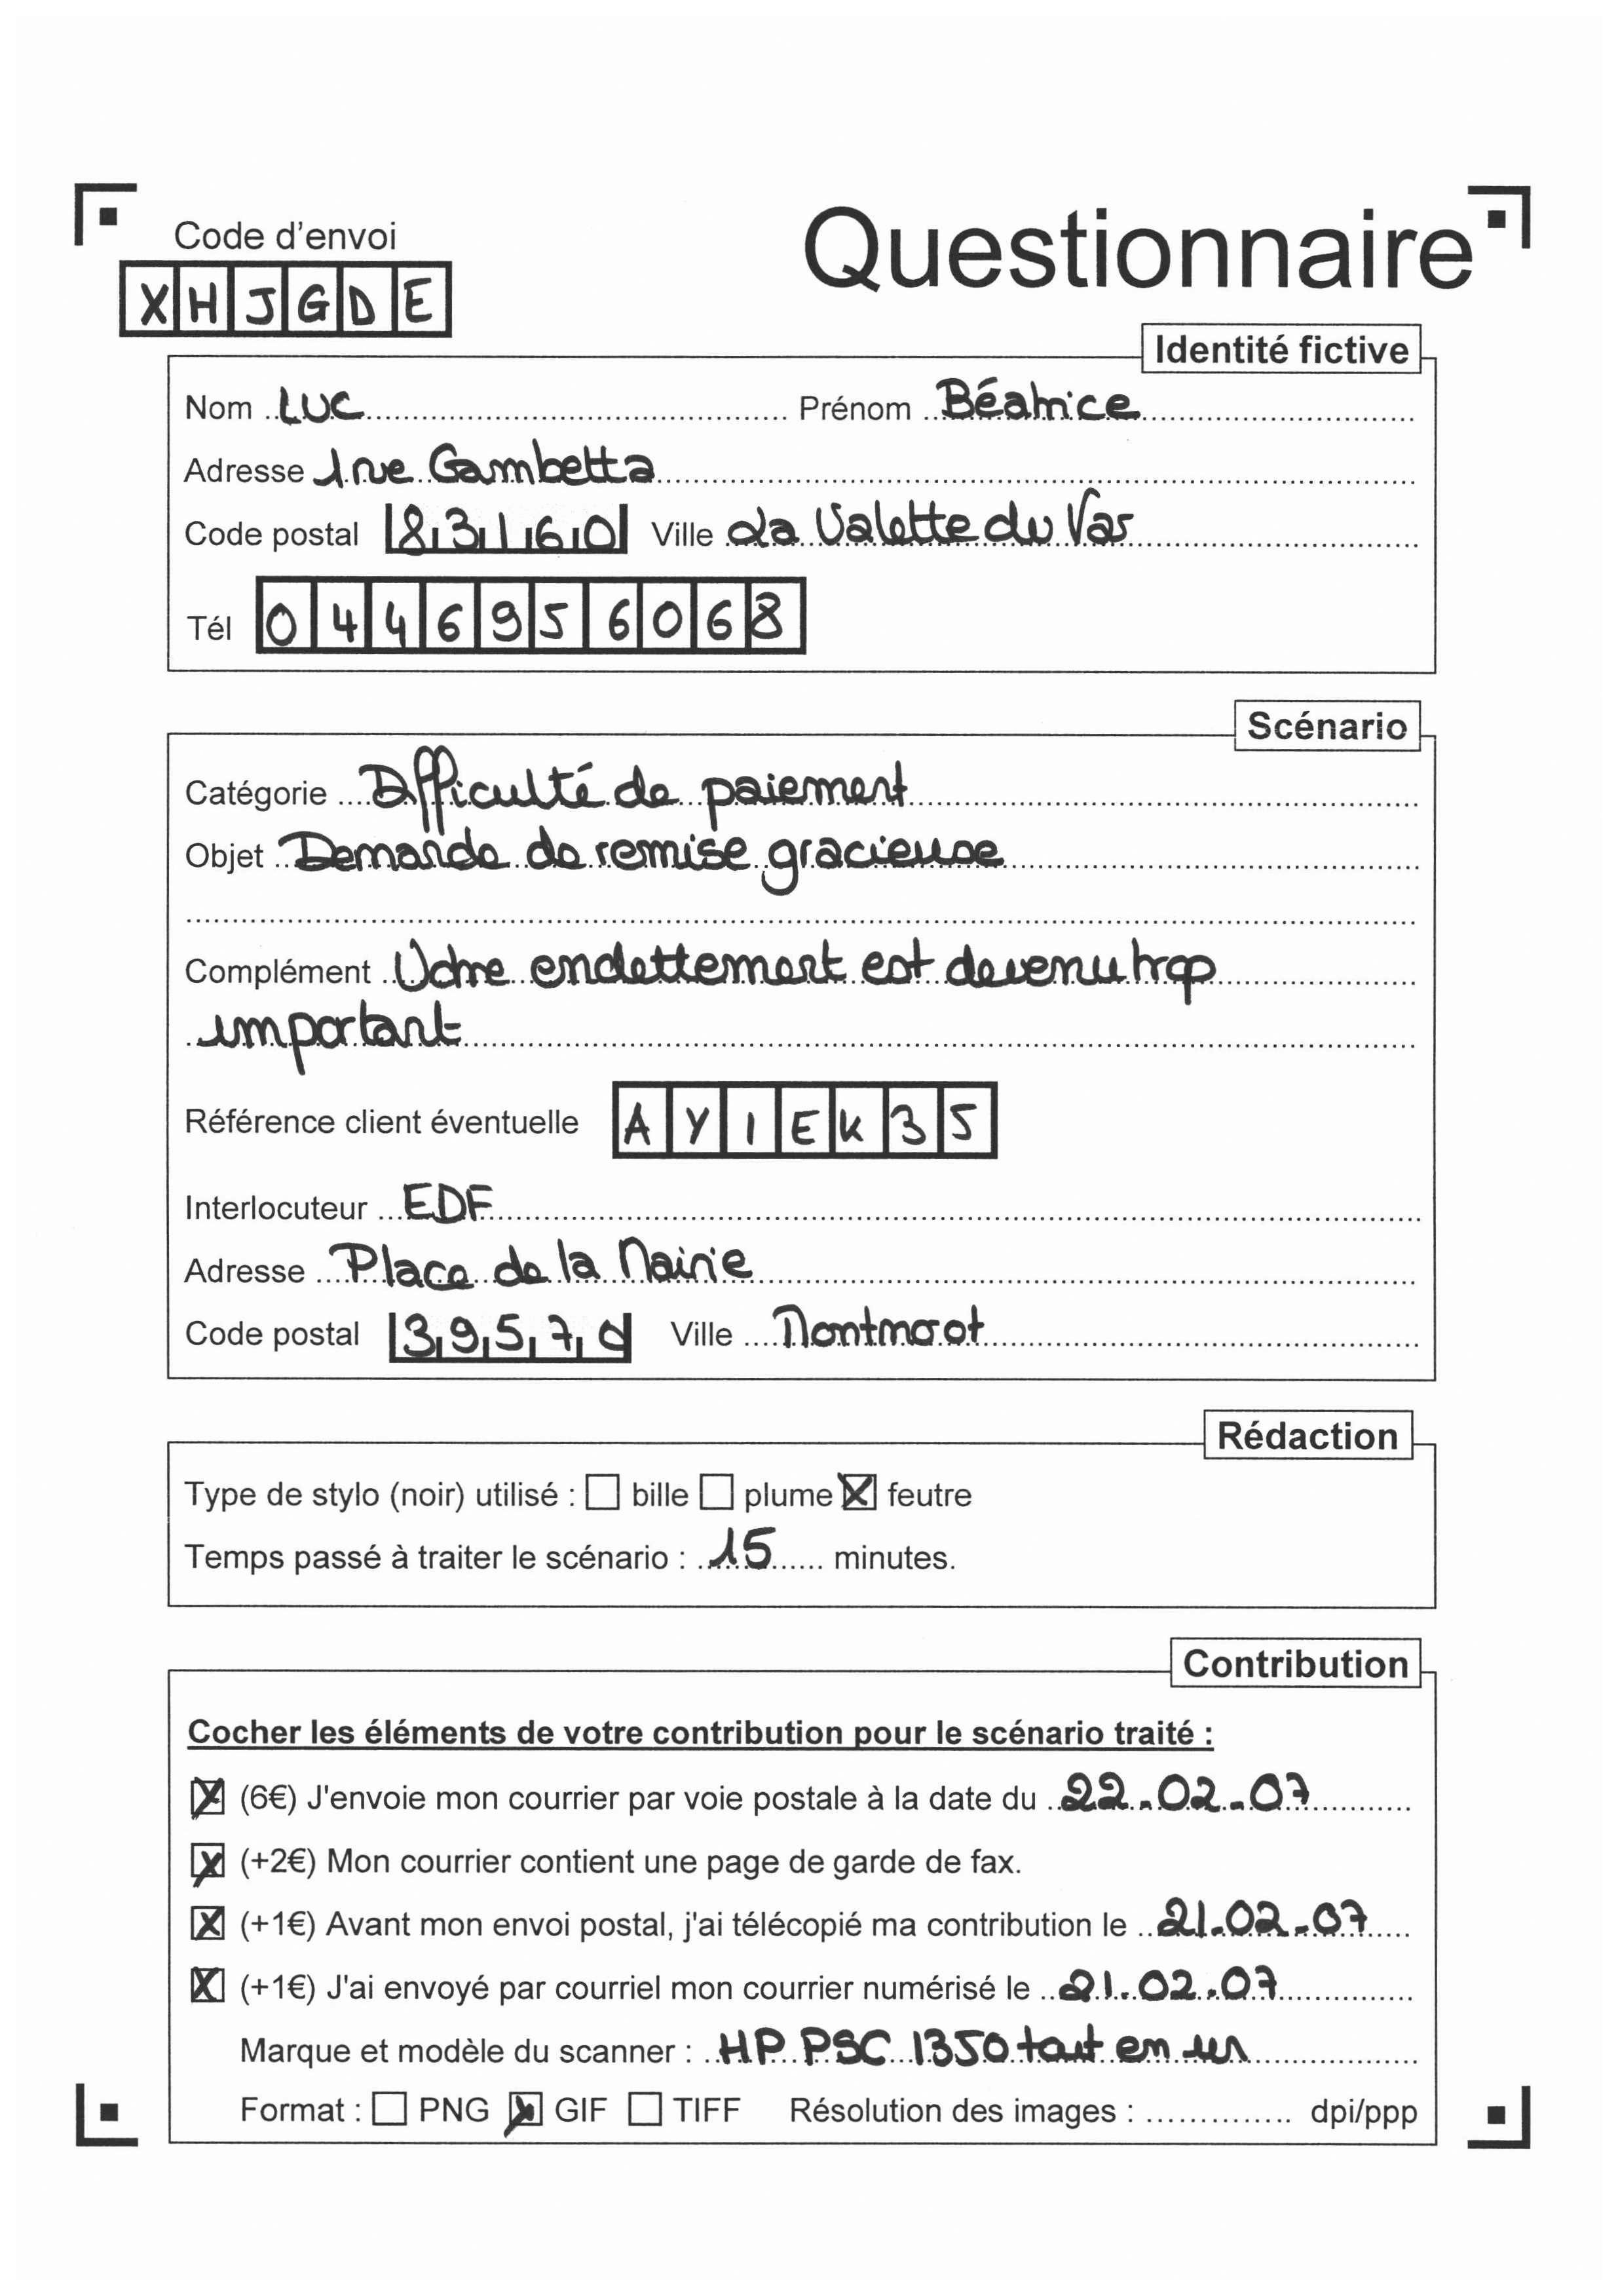 Code d'envoi
Questionnaire
XHJGDE
Identité fictive
Nom LUC Prénom Béatrice
Adresse 1 rue Gambetta
Code postal 83160 Ville La Valette du Var
Tél 0446956068
Scénario
Catégorie Difficulté de paiement
Objet Demande de remise gracieuse
Complément Votre endettement est devenu trop
important
Référence client éventuelle AYIEK35
Interlocuteur EDF
Adresse Place de la Mairie
Code postal 39570 Ville Montmorot
Rédaction
Type de stylo (noir) utilisé : bille plume feutre
Temps passé à traiter le scénario : 15 minutes.
Contribution
Cocher les éléments de votre contribution pour le scénario traité :
(6€) J'envoie mon courrier par voie postale à la date du 22.02.07
(+2€) Mon courrier contient une page de garde de fax.
(+1€) Avant mon envoi postal, j'ai télécopié ma contribution le 21.02.07
(+1€) J'ai envoyé par courriel mon courrier numérisé le 21.02.07
Marque et modèle du scanner : HP PSC 1350 tout en un
Format : PNG GIF TIFF Résolution des images : dpi/ppp